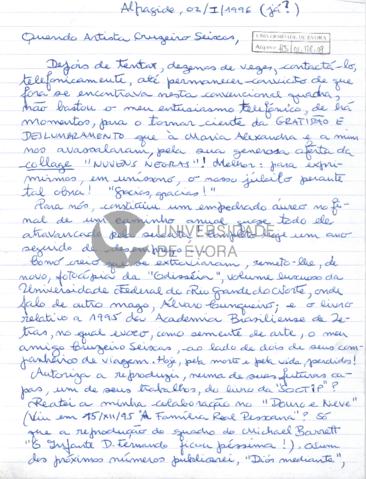 Alfragide, 02/I/1996 (já?)
Querido Artista Cruzeiro Seixas,
UNIVERSIDADE DE EVORA
Depois de tentar, dezenas de vezes, contactá-lo,
telefonicamente, até permanecer convicto de que
fora se encontrava nesta convencional quadra,
não bastou o meu entusiasmo telefónico, de há
momentos, para o tornar ciente da GRATIDÃO E
DESLUMBRAMENTO que à Maria Alexandra e a mim
nos avassalaram, pela sua generosa oferta da
collage "NUVENS NEGRAS"! Melhor: para expri-
mirmos, em uníssono, o nosso júbilo perante
tal obra! "Gracias, gracias!"
Para nós, constituiu um empedrado áureo no fi-
nal de um caminho anual quase todo ele
atravancado pela
segundo de desgosto.
UNIVERSIDADE
DE ÉVORA
Como creio que se extraviaram, remeto-lhe, de
novo, fotocópias da "Odisseia", volume luxuoso da
Universidade Federal do Rio Grande do Norte, onde
falo de outro mago, Álvaro Cunqueiro; e o livro
relativo a 1995 da Academia Brasiliense de Le-
tras, no qual evoco, como semente de arte, o meu
amigo Cruzeiro Seixas, ao lado de dois de seus com-
panheiros de viagem. Hoje, pela morte e pela vida, perdidos!
Autoriza a reproduzir, numa de suas futuras ca-
pas, um de seus trabalhos, do livro da "SOCTIP"?
Reatei a minha colaboração no "Douro e Neve"
(Viu em 15/XII/95 "A Família Real Pessoana"? Só
que a reprodução do quadro do Michael Barrett
"O Infante D. Fernando ficou péssima!"). Num
dos próximos números publicarei, "Diós mediante",